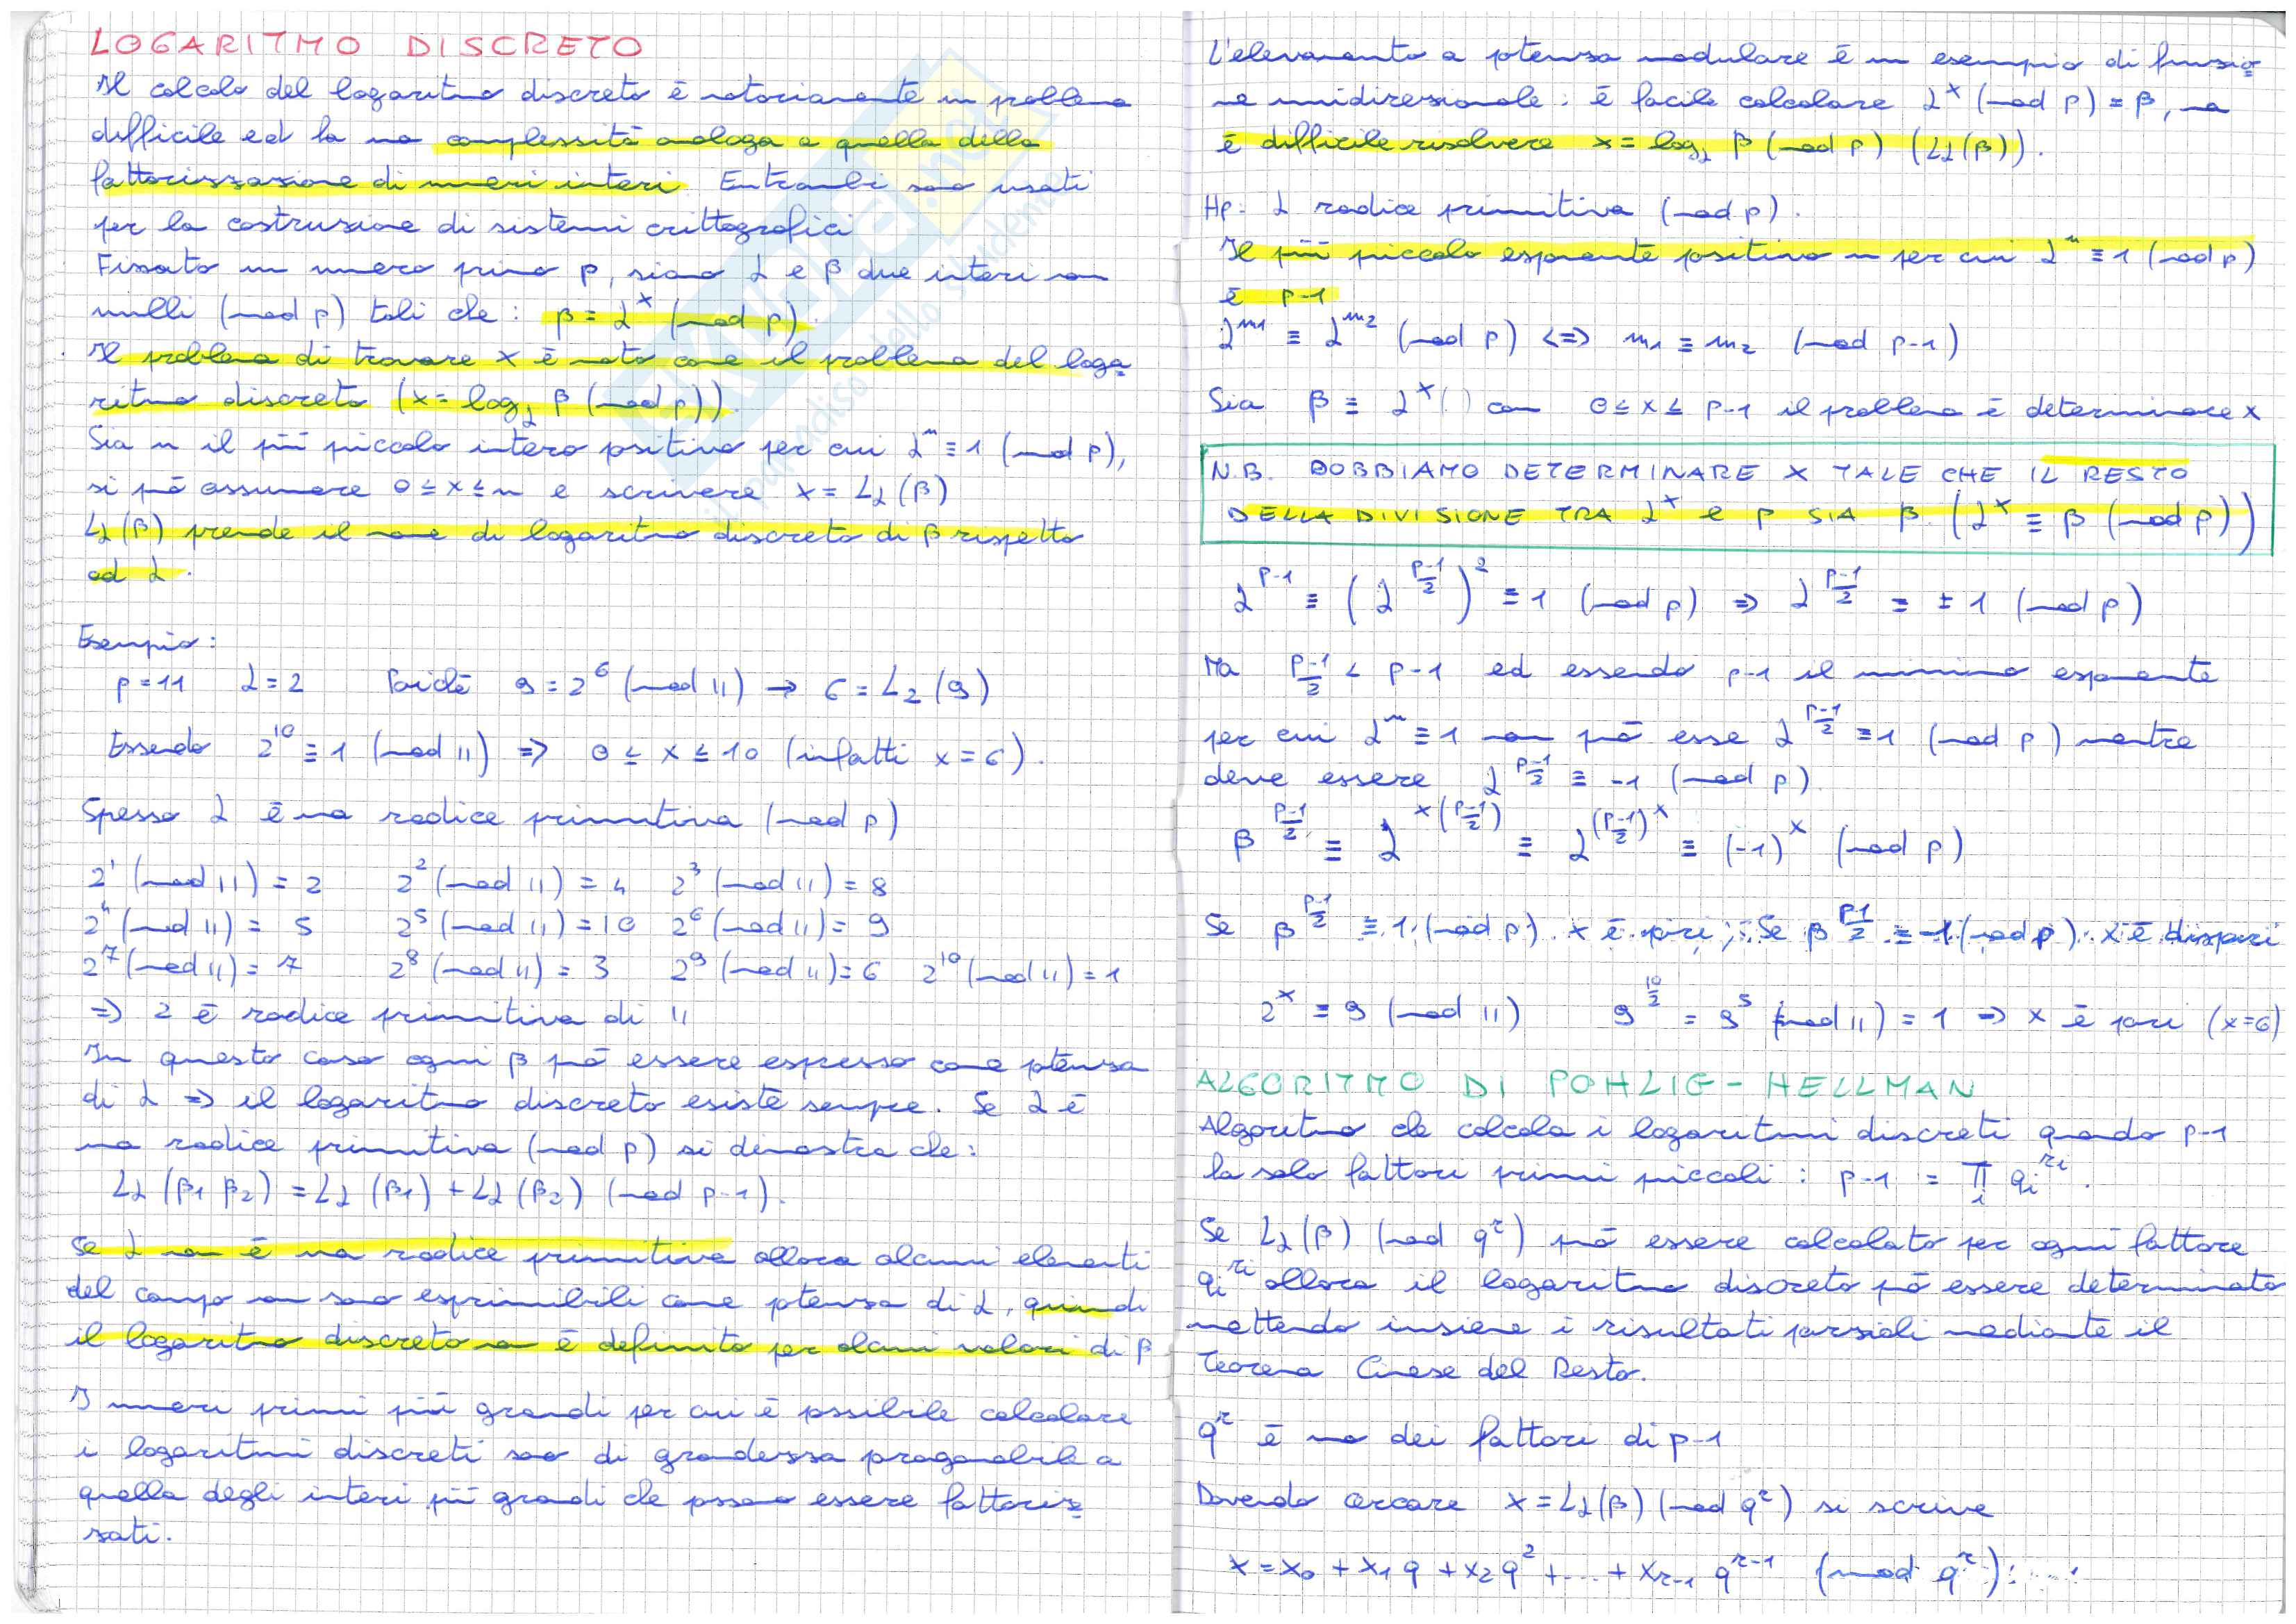 LOGARITMO DISCRETO
Il calcolo del logaritmo discreto è notoriamente un problema
difficile ed ha una complessità analoga a quella della
fattorizzazione di numeri interi. Entrambi sono usati
per la costruzione di sistemi crittografici
Fissato un numero primo p, siano α e β due interi non
nulli (mod p) tali che: β = α^x (mod p).
Il problema di trovare x è noto come il problema del loga
ritmo discreto (x = log_α β (mod p)).
Sia n il più piccolo intero positivo per cui α^n ≡ 1 (mod p),
si può assumere 0 ≤ x ≤ n e scrivere x = L_α(β)
L_α(β) prende il nome di logaritmo discreto di β rispetto
ad α.
Esempio:
p = 11 α = 2 Poiché 9 = 2^6 (mod 11) → 6 = L_2(9)
Essendo 2^10 ≡ 1 (mod 11) => 0 ≤ x ≤ 10 (infatti x = 6).
Spesso α è una radice primitiva (mod p)
2^1 (mod 11) = 2 2^2 (mod 11) = 4 2^3 (mod 11) = 8
2^4 (mod 11) = 5 2^5 (mod 11) = 10 2^6 (mod 11) = 9
2^7 (mod 11) = 7 2^8 (mod 11) = 3 2^9 (mod 11) = 6 2^10 (mod 11) = 1
=> 2 è radice primitiva di 11
In questo caso ogni β può essere espresso come potenza
di α => il logaritmo discreto esiste sempre. Se α è
una radice primitiva (mod p) si dimostra che:
L_α(β1 β2) = L_α(β1) + L_α(β2) (mod p-1).
Se α non è una radice primitiva allora alcuni elementi
del campo non sono esprimibili come potenza di α, quindi
il logaritmo discreto non è definito per alcuni valori di β
I numeri primi più grandi per cui è possibile calcolare
i logaritmi discreti sono di grandezza paragonabile a
quella degli interi più grandi che possono essere fattoriz
zati.
L'elevamento a potenza modulare è un esempio di funzio
ne unidirezionale: è facile calcolare α^x (mod p) = β, ma
è difficile risolvere x = log_α β (mod p) (L_α(β)).
Hp: α radice primitiva (mod p).
Il più piccolo esponente positivo n per cui α^n ≡ 1 (mod p)
è p-1
α^m1 ≡ α^m2 (mod p) <=> m1 ≡ m2 (mod p-1)
Sia β ≡ α^x () con 0 ≤ x ≤ p-1 il problema è determinare x
N.B. DOBBIAMO DETERMINARE X TALE CHE IL RESTO
DELLA DIVISIONE TRA α^x e p SIA β. (α^x ≡ β (mod p))
α^(p-1) ≡ (α^((p-1)/2))^2 ≡ 1 (mod p) => α^((p-1)/2) = ±1 (mod p)
Ma (p-1)/2 < p-1 ed essendo p-1 il minimo esponente
per cui α^n ≡ 1 non può esse α^((p-1)/2) ≡ 1 (mod p) mentre
deve essere α^((p-1)/2) ≡ -1 (mod p).
β^((p-1)/2) ≡ α^(x((p-1)/2)) ≡ α^(((p-1)/2)x) ≡ (-1)^x (mod p)
Se β^((p-1)/2) ≡ 1 (mod p) x è pari; Se β^((p-1)/2) = -1 (mod p) x è dispari
2^x ≡ 9 (mod 11) 9^(10/2) = 9^5 (mod 11) = 1 => x è pari (x=6)
ALGORITMO DI POHLIG-HELLMAN
Algoritmo che calcola i logaritmi discreti quando p-1
ha solo fattori primi piccoli: p-1 = ∏_i q_i^(r_i).
Se L_α(β) (mod q^r) può essere calcolato per ogni fattore
q_i^(r_i) allora il logaritmo discreto può essere determinato
mettendo insieme i risultati parziali mediante il
Teorema Cinese del Resto.
q^r è uno dei fattori di p-1
Dovendo cercare x = L_α(β) (mod q^r) si scrive
x = x0 + x1 q + x2 q^2 + ... + x_(r-1) q^(r-1) (mod q^r):